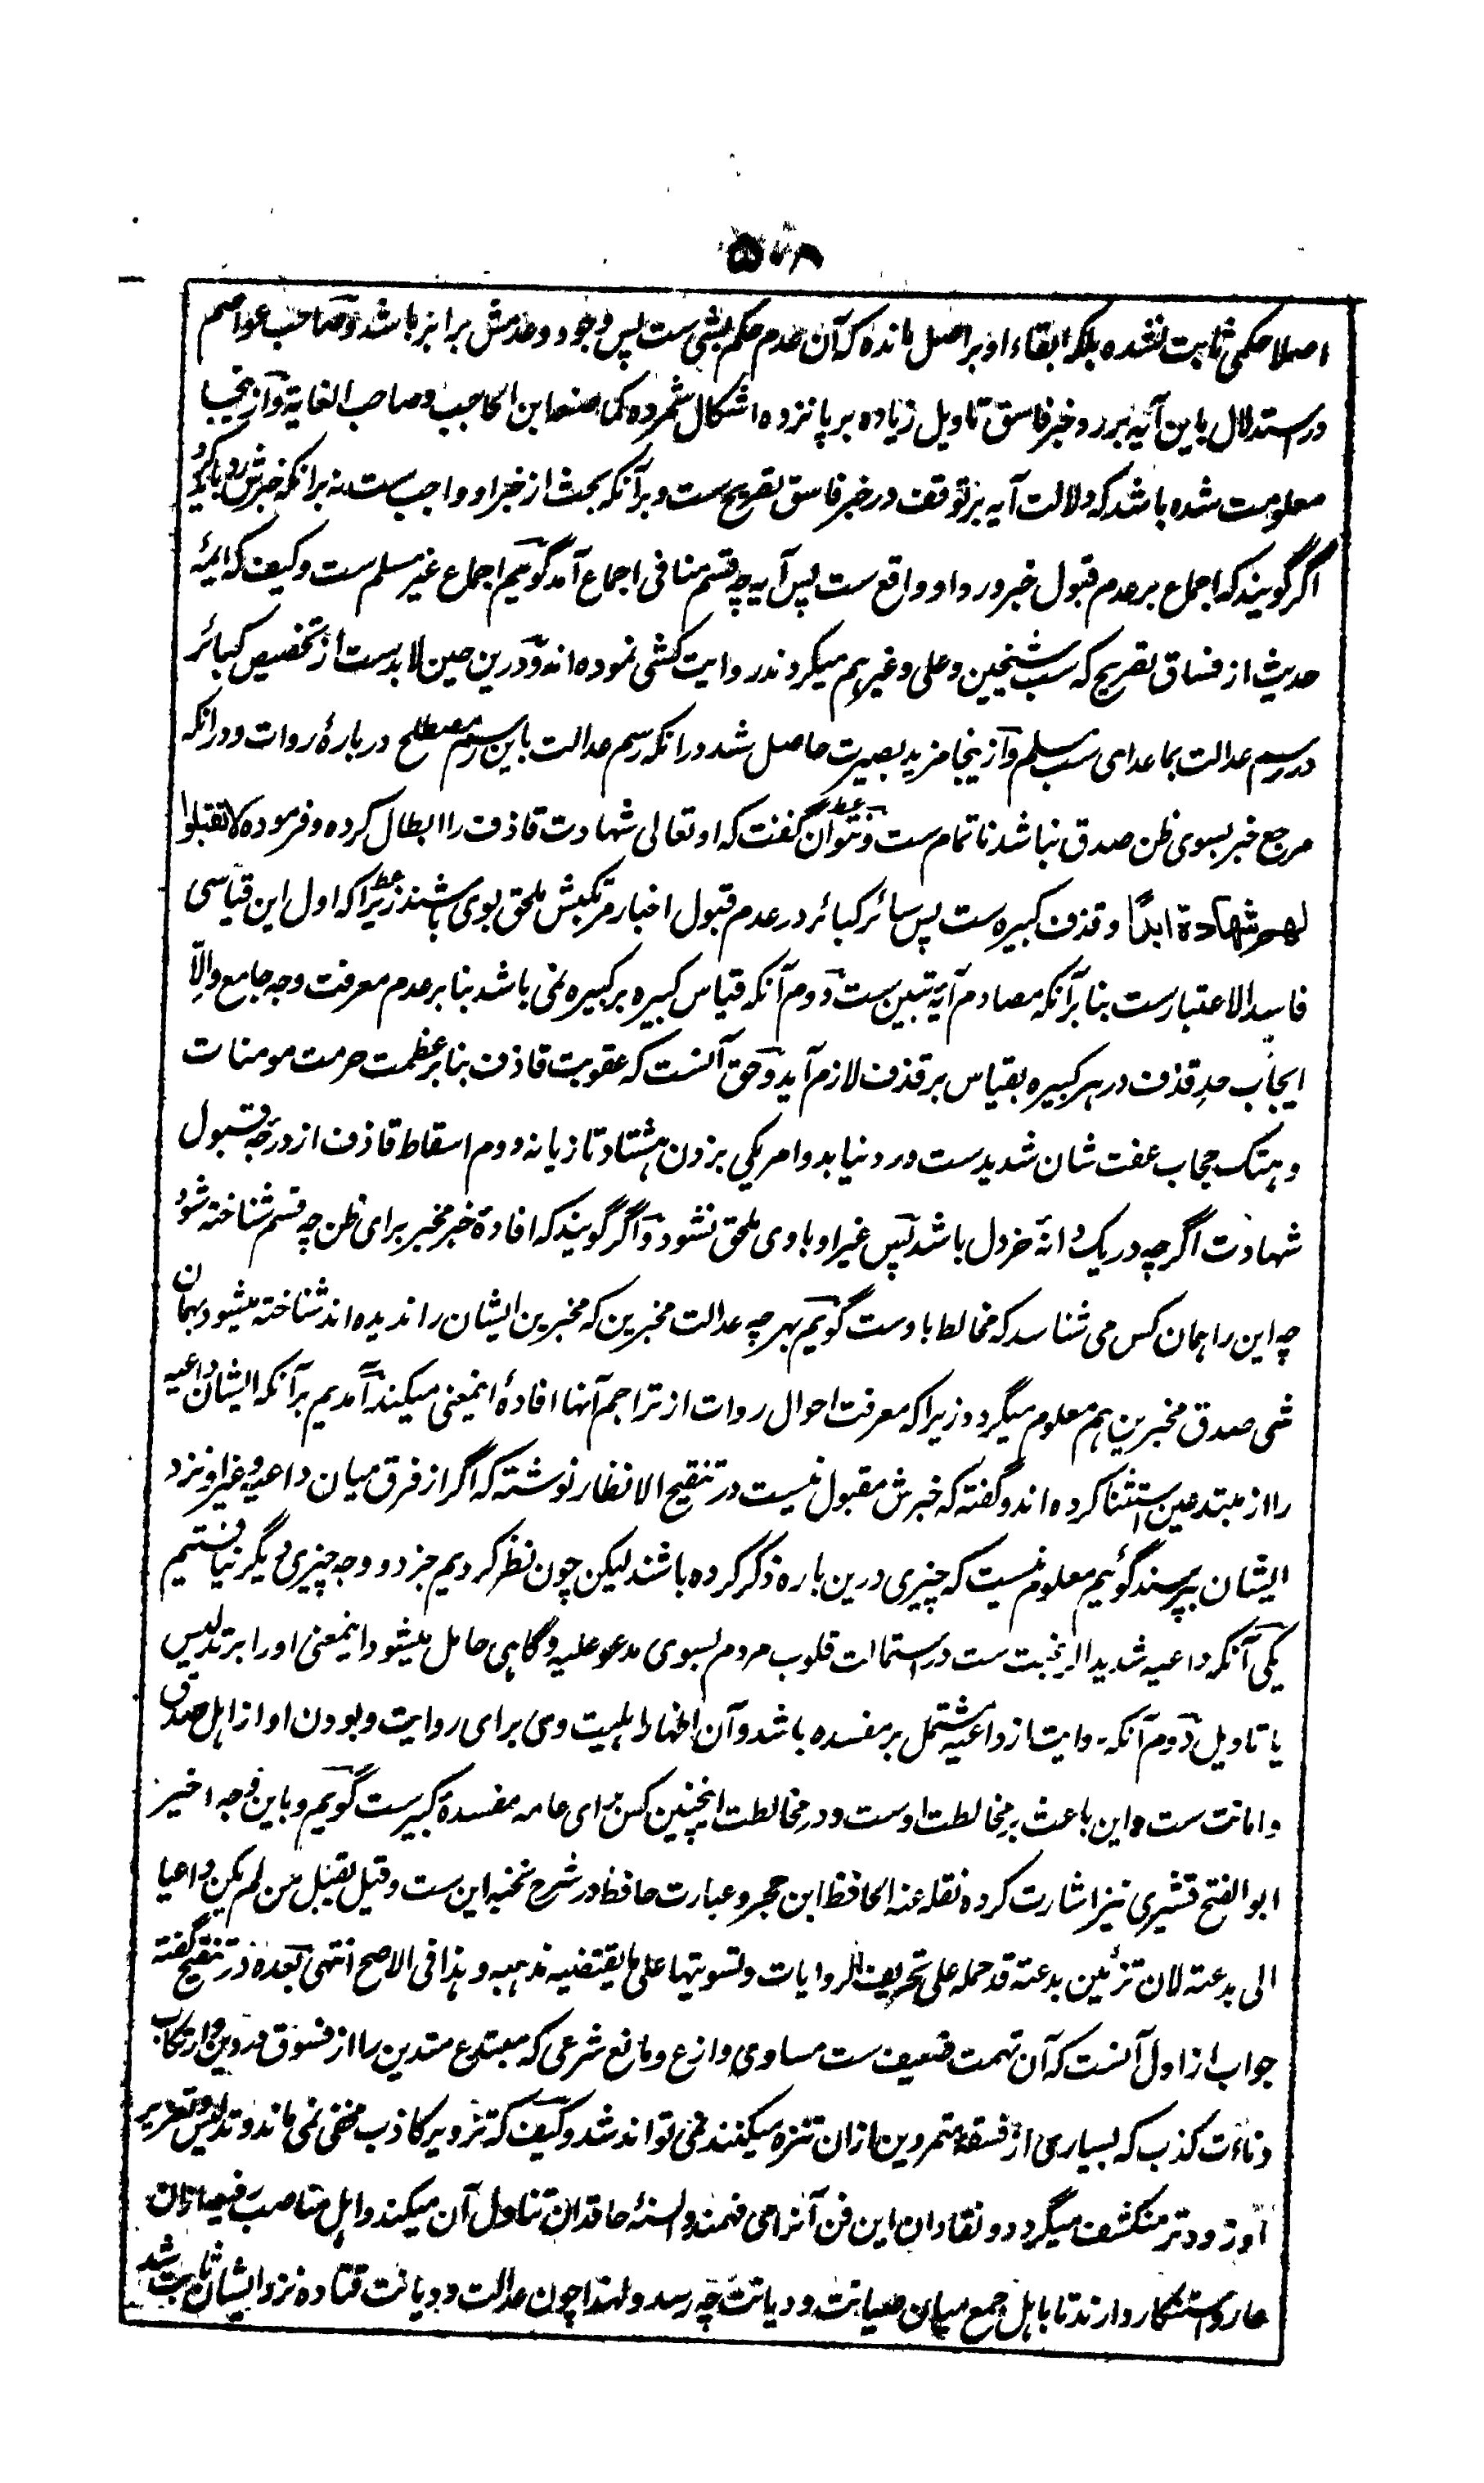 ۵۷۸
اصلا حکمی ثابت نشده بلکہ ابقاء او بر اصل ماندہ کہ آن عدم حکم بشی ست پس وجود و عدمش برابر باشد و صاحب عواصم
در استدلال باین آیہ بر رد خبر فاسق تاویل زیادہ بر پانزدہ اشکال شمردہ کما صنعہ ابن الحاجب و صاحب الغایة و ازینجا
معلومت شدہ باشد کہ دلالت آیہ بر توقف در خبر فاسق تصریح ست و بر آنکہ بحث از خبر او واجب ست نہ برانکہ خبرش رد باید کرد
اگر گویند کہ اجماع بر عدم قبول خبر و رد او واقع ست پس آیہ چہ قسم منافی اجماع آمد گوئیم اجماع غیر مسلم ست و کیف کہ ائمۂ
حدیث از فساق تصریح کہ سب شیخین و علی و غیرہم میکردند روایت کشی نمودہ اند و درین حین لا بدست از تخصیص کبائر
در رسم عدالت بما عدای سب مسلم و ازینجا مزید بصیرت حاصل شد درانکہ رسم عدالت باین رسم مصطلح دربارۂ روات و درانکہ
مرجع خبر بسوی ظن صدق نباشد ناتمام ست و نتوان گفت کہ او تعالی شہادت قاذف را ابطال کردہ و فرمودہ لا تقبلوا
لهم شهادة ابدًا و قذف کبیرہ ست پس سائر کبائر در عدم قبول اخبار مرتکبش ملحق بوی باشند زیراکہ اول این قیاسی
فاسد الاعتبارست بنا بر آنکہ مصادم آیۂ تبین ست دوم آنکہ قیاس کبیرہ بر کبیرہ نمی باشد بنا بر عدم معرفت وجہ جامع و الّا
ایجاب حدِ قذف در ہر کبیرہ بقیاس بر قذف لازم آید و حق آنست کہ عقوبت قاذف بنا بر عظمت حرمت مومنات
و ہتک حجاب عفت شان شدیدست در دنیا بدو امر یکی بزدن ہشتاد تازیانہ دوم اسقاط قاذف از درجۂ قبول
شہادت اگرچہ در یک دانۂ خردل باشد پس غیر او باوی ملحق نشود و اگر گویند کہ افادۂ خبر مخبر برای ظن چہ قسم شناختہ شود
چہ این را ہمان کس می شناسد کہ مخالط باوست گوئیم بہرچہ عدالت مخبرین کہ مخبرین ایشان را ندیدہ اند شناختہ میشود بہمان
شی صدق مخبرین ہم معلوم میگردد زیراکہ معرفت احوال روات از تراجم آنہا افادۂ اینمعنی میکند آمدیم برآنکہ ایشان داعیہ
را از مبتدعین استثنا کردہ اند و گفتہ کہ خبرش مقبول نیست در تنقیح الانظار نوشتہ کہ اگر از فرق میان داعیہ و غیر او نزد
ایشان بپرسند گوئیم معلوم نیست کہ چیزی درین بارہ ذکر کردہ باشند لیکن چون نظر کردیم جز دو وجہ چیزی دیگر نیافتیم
یکی آنکہ داعیہ شدید الرغبت ست در استمالت قلوب مردم بسوی مدعو علیہ و گاہی حامل میشود اینمعنی او را بر تدلیس
یا تاویل دوم آنکہ روایت از داعیہ مشتمل بر مفسدہ باشد و آن اظہار اہلیت وی برای روایت و بودن او از اہل صدق
و امانت ست و این باعث بر مخالطت اوست و در مخالطت اینچنین کس برای عامہ مفسدۂ کبیرست گوئیم و باین وجہ اخیر
ابو الفتح قشیری نیز اشارت کردہ نقلہ عنہ الحافظ ابن حجر و عبارت حافظ در شرح نخبہ این ست و قیل یقبل من لم یکن داعیا
الی بدعتہ لان تزئین بدعتہ قد حملہ علی تحریف الروایات و تسویتہا علی ما یقتضیہ مذہبہ و ہذا فی الاصح انتہی بعدہ در تنقیح گفتہ
جواب از اول آنست کہ آن تہمت ضعیف ست مساوی وازع و مانع شرعی کہ مبتدع متدین را از فسوق در دین و ارتکاب
دناءت کذب کہ بسیاری از فسقۂ متمردین ازان تنزہ میکنند نمی تواند شد و کیف کہ تزویر کاذب مخفی نمی ماند و تدلیس و تغریر
او زودتر منکشف میگردد و نقادان این فن آنرا می فہمند و السنۂ حاقدان تناول آن میکند و اہل مناصب رفیعہ ازان
عار و استنکار دارند تا باہل جمع میان صیانت و دیانت چہ رسد و لہذا چون عدالت و دیانت قتادہ نزد ایشان ثابت شد